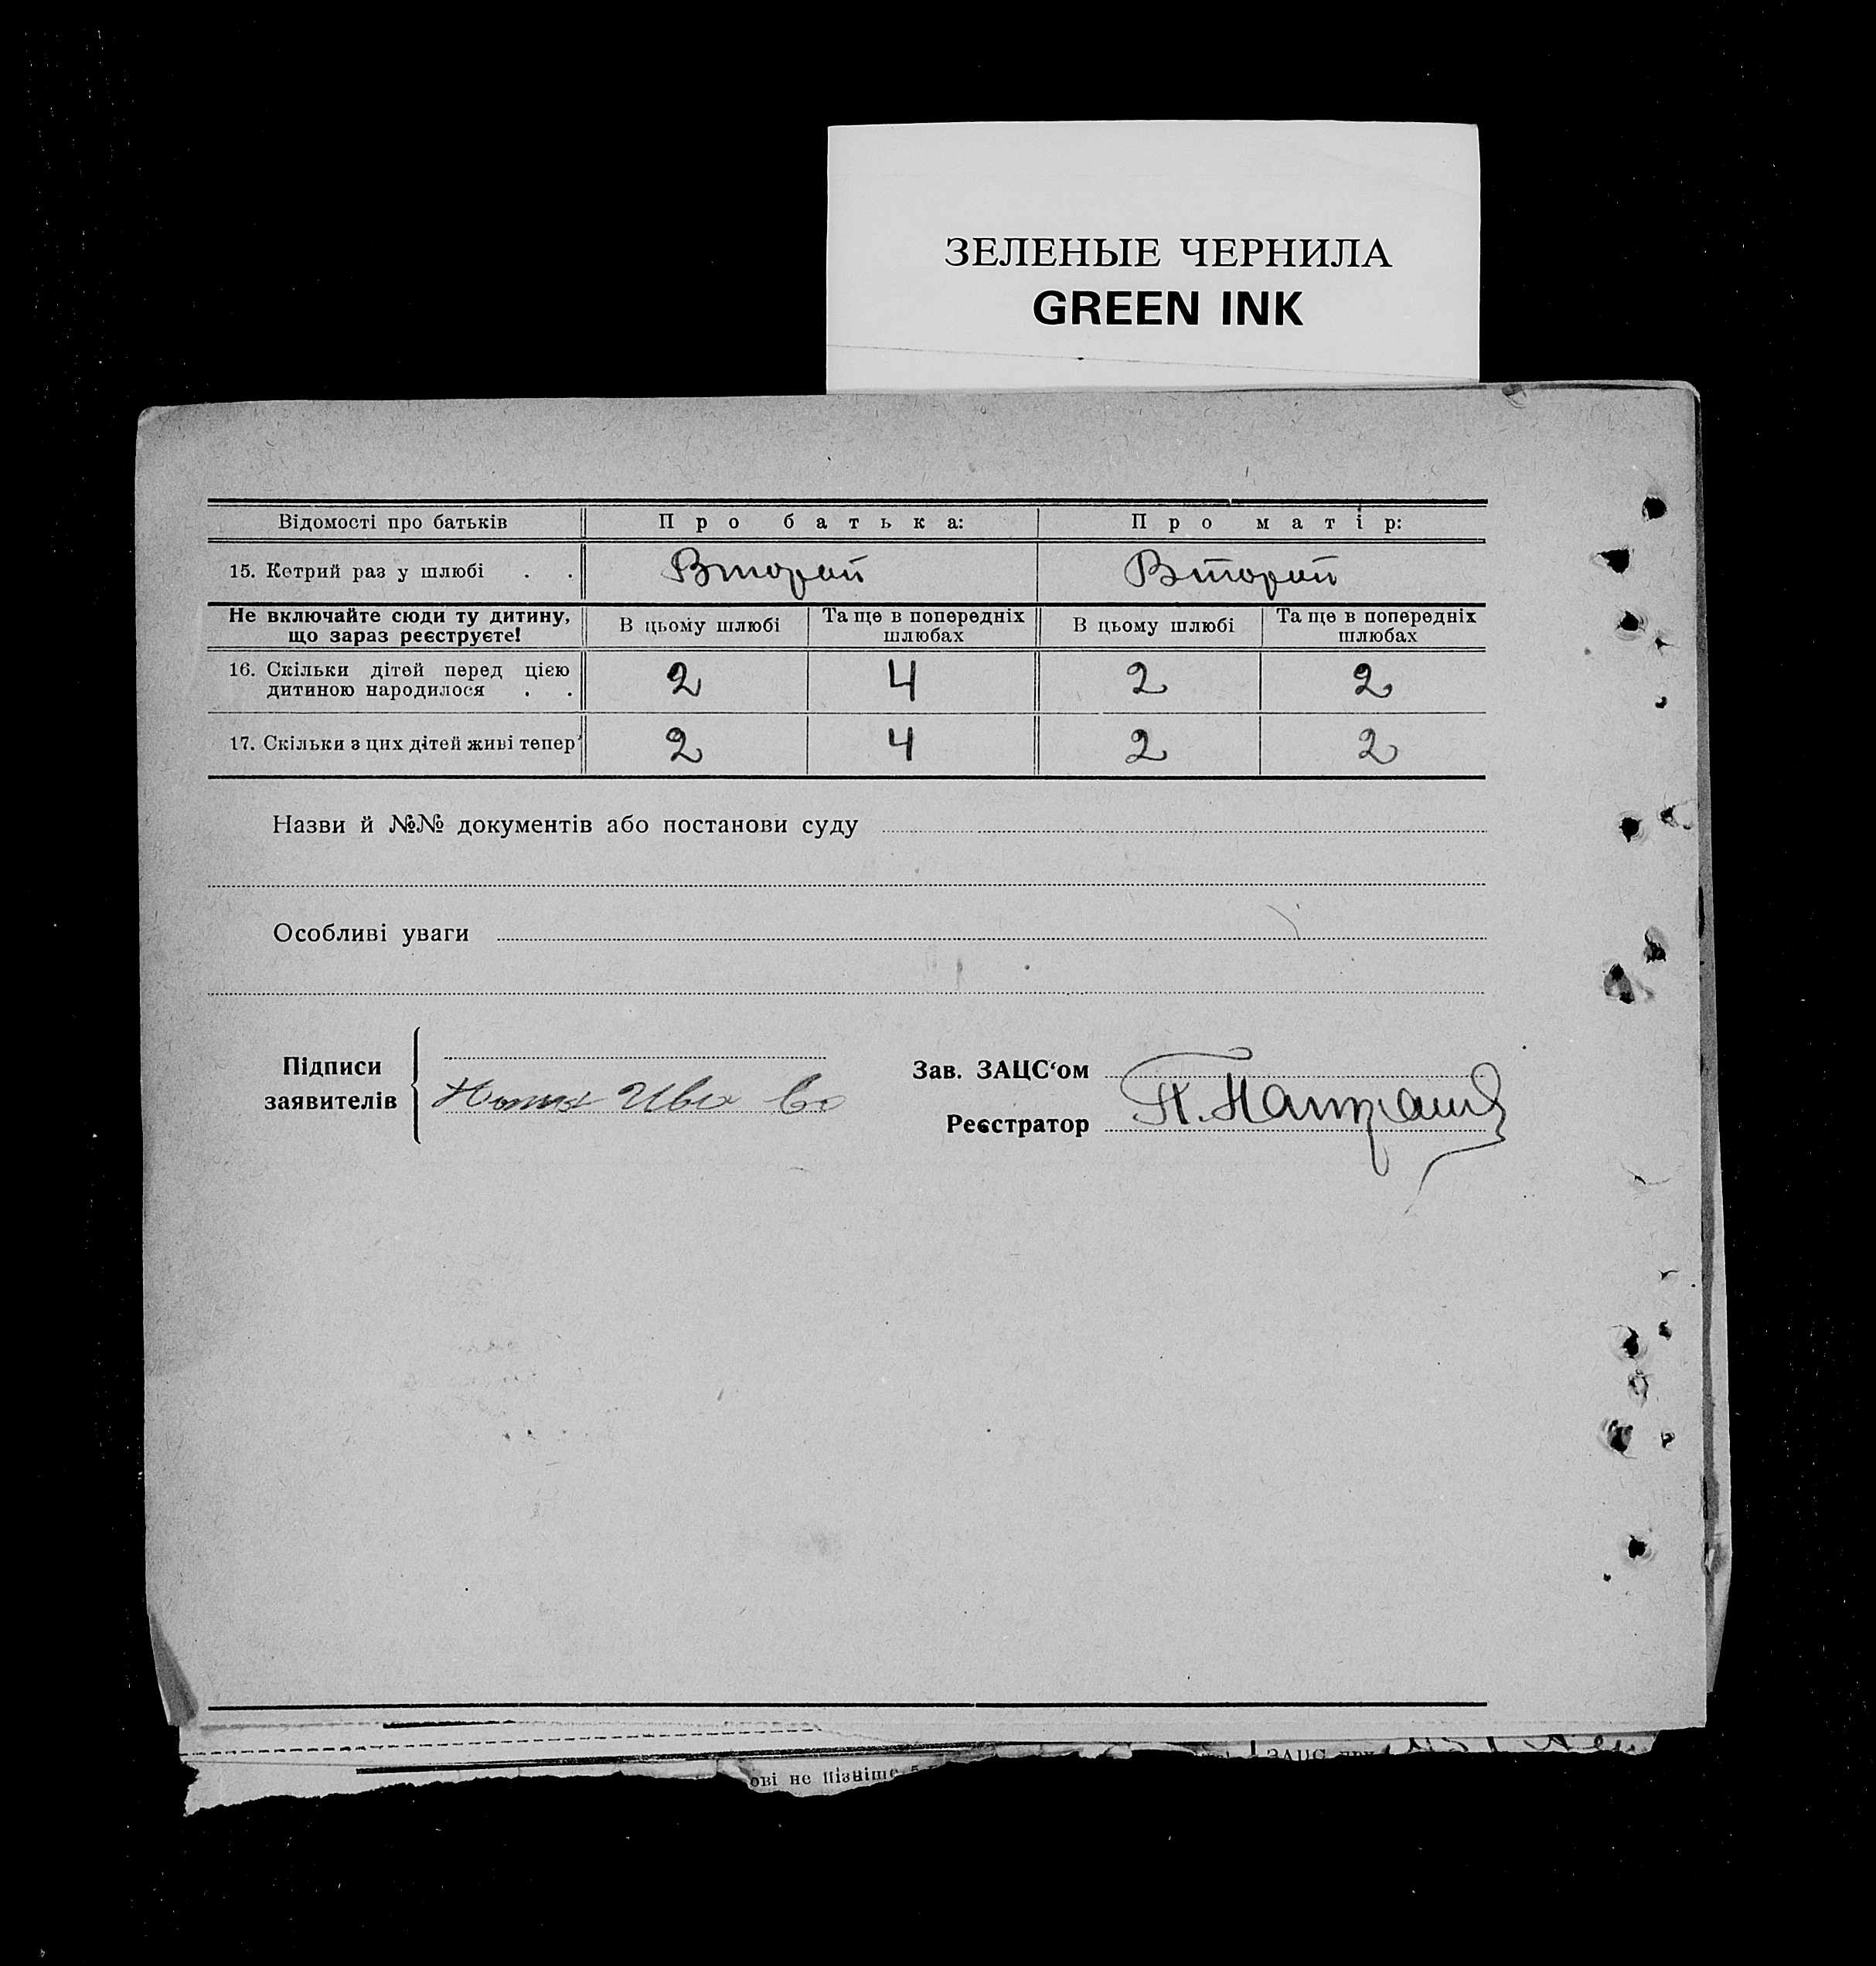 ЗЕЛЕНЫЕ ЧЕРНИЛА
GREEN INK
Відомості про батьків Про батька: Про матір:
15. Котрий раз у шлюбі . . Второй Второй
Не включайте сюди ту дитину, що зараз реєструєте! В цьому шлюбі Та ще в попередніх шлюбах В цьому шлюбі Та ще в попередніх шлюбах
16. Скільки дітей перед цією
дитиною народилося . . 2 4 2 2
17. Скільки з цих дітей живі тепер 2 4 2 2
Назви й №№ документів або постанови суду
Особливі уваги
Підписи
заявителів
Зав. ЗАЦС‘ом
Реєстратор
ові не пізніше
ЗАЦС